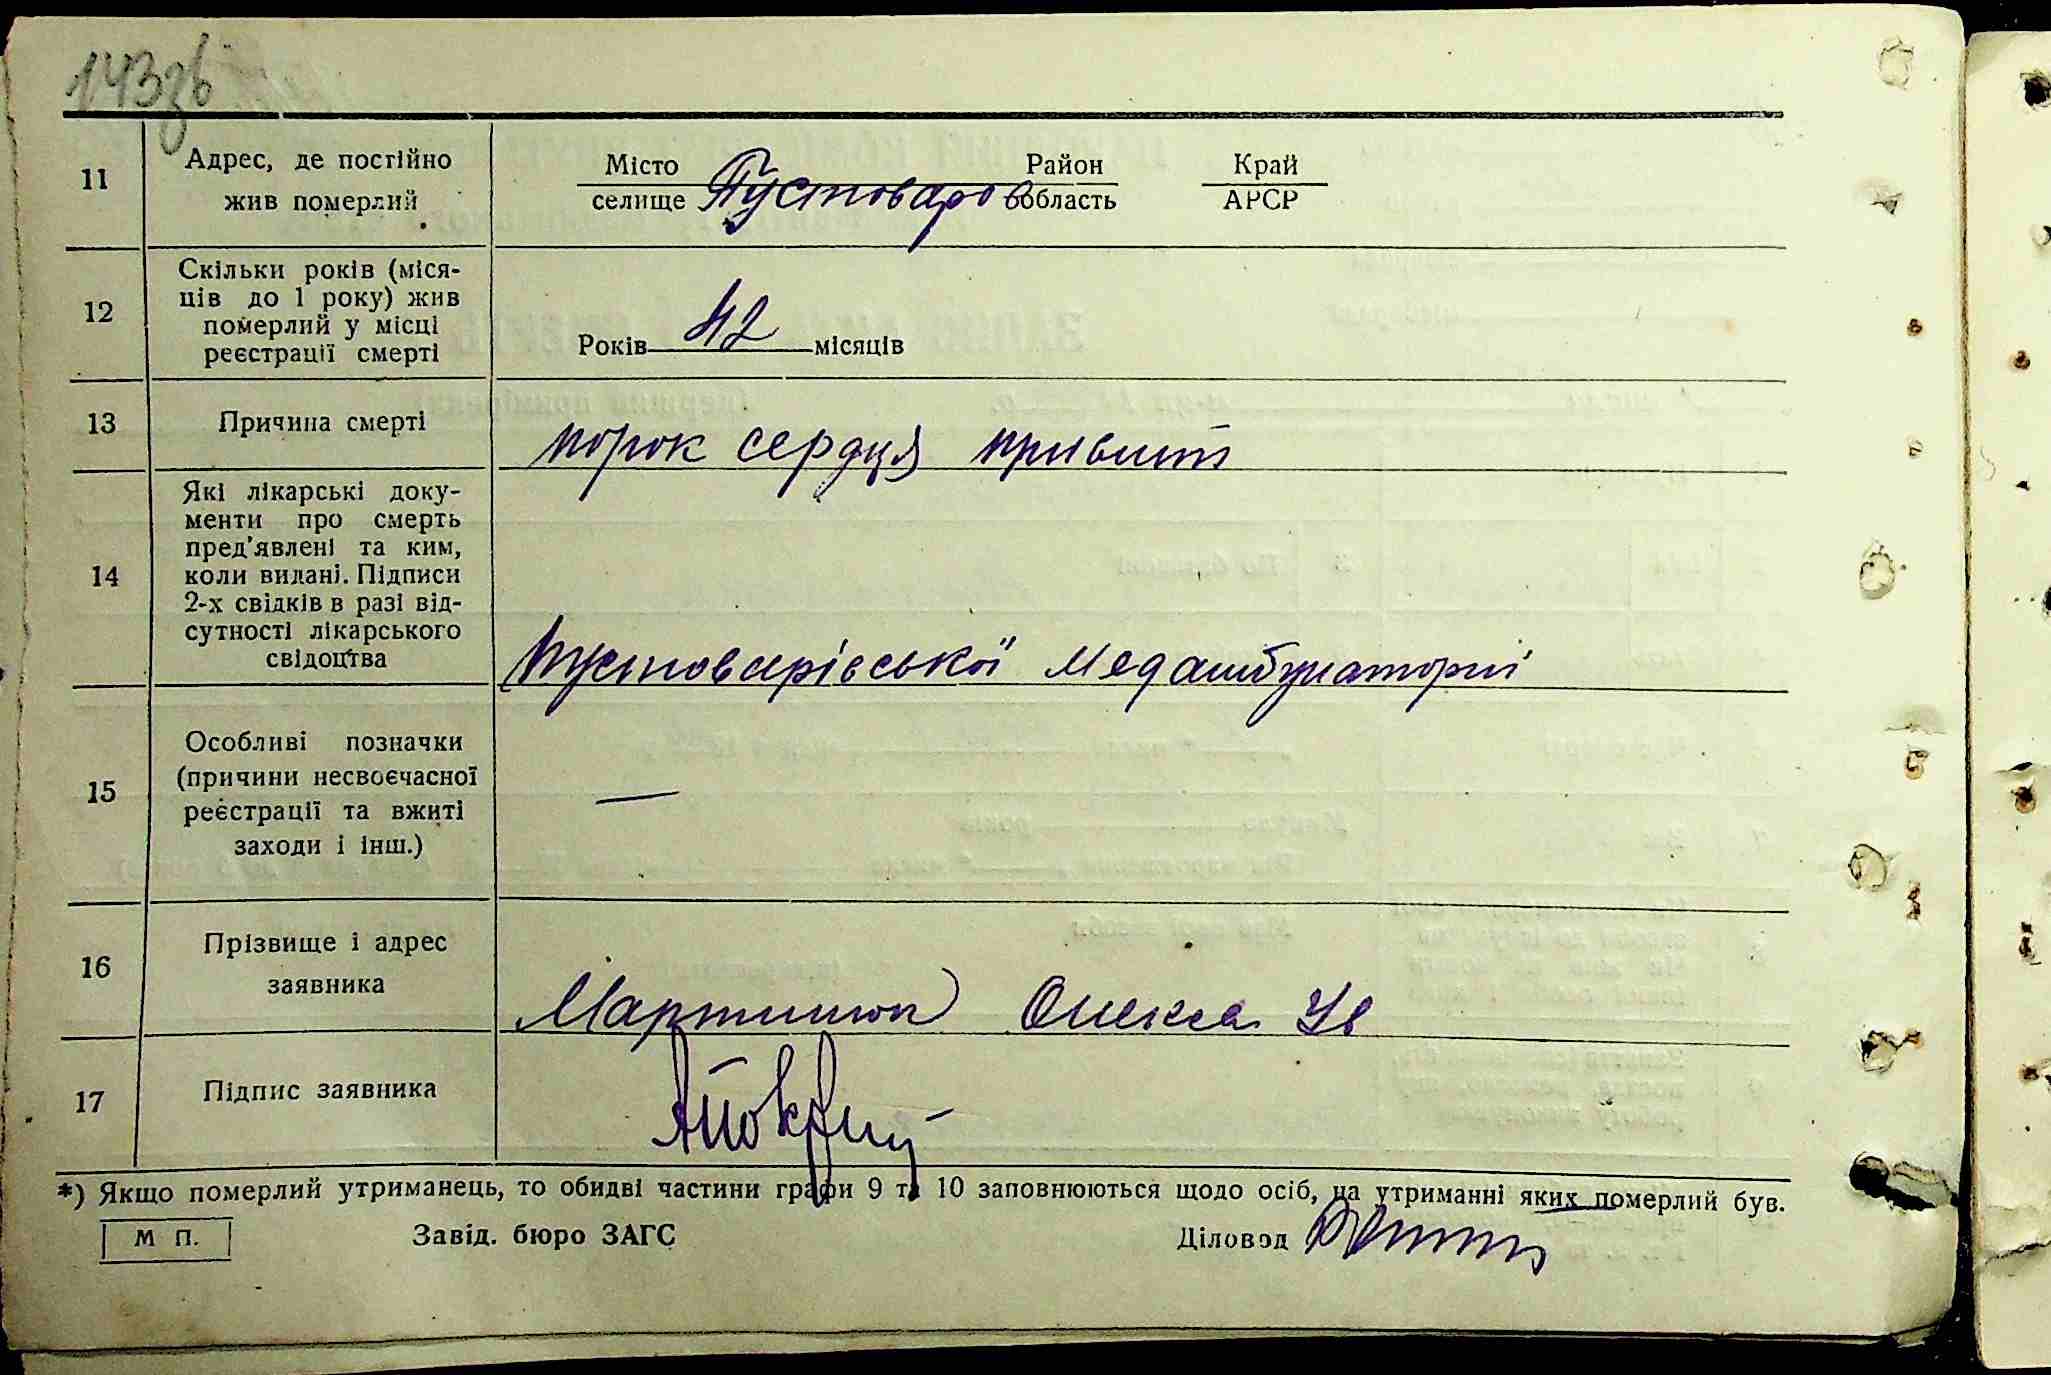 143зв
11 Адрес, де постійно жив померлий
Місто Район Край
селище Пустоваров область АРСР
12 Скільки років (місяців до 1 року) жив померлий у місці реєстрації смерті
Років 42 місяців
13 Причина смерті
порок сердця
14 Які лікарські документи про смерть пред'явлені та ким, коли видані. Підписи 2-х свідків в разі відсутності лікарського свідоцтва
Пустоварівської Медамбулаторії
15 Особливі позначки (причини несвоєчасної реєстрації та вжиті заходи і інш.)
—
16 Прізвище і адрес заявника
Олекса
17 Підпис заявника
*) Якщо померлий утриманець, то обидві частини графи 9 та 10 заповнюються щодо осіб, на утриманні яких померлий був.
М П. Завід. бюро ЗАГС Діловод